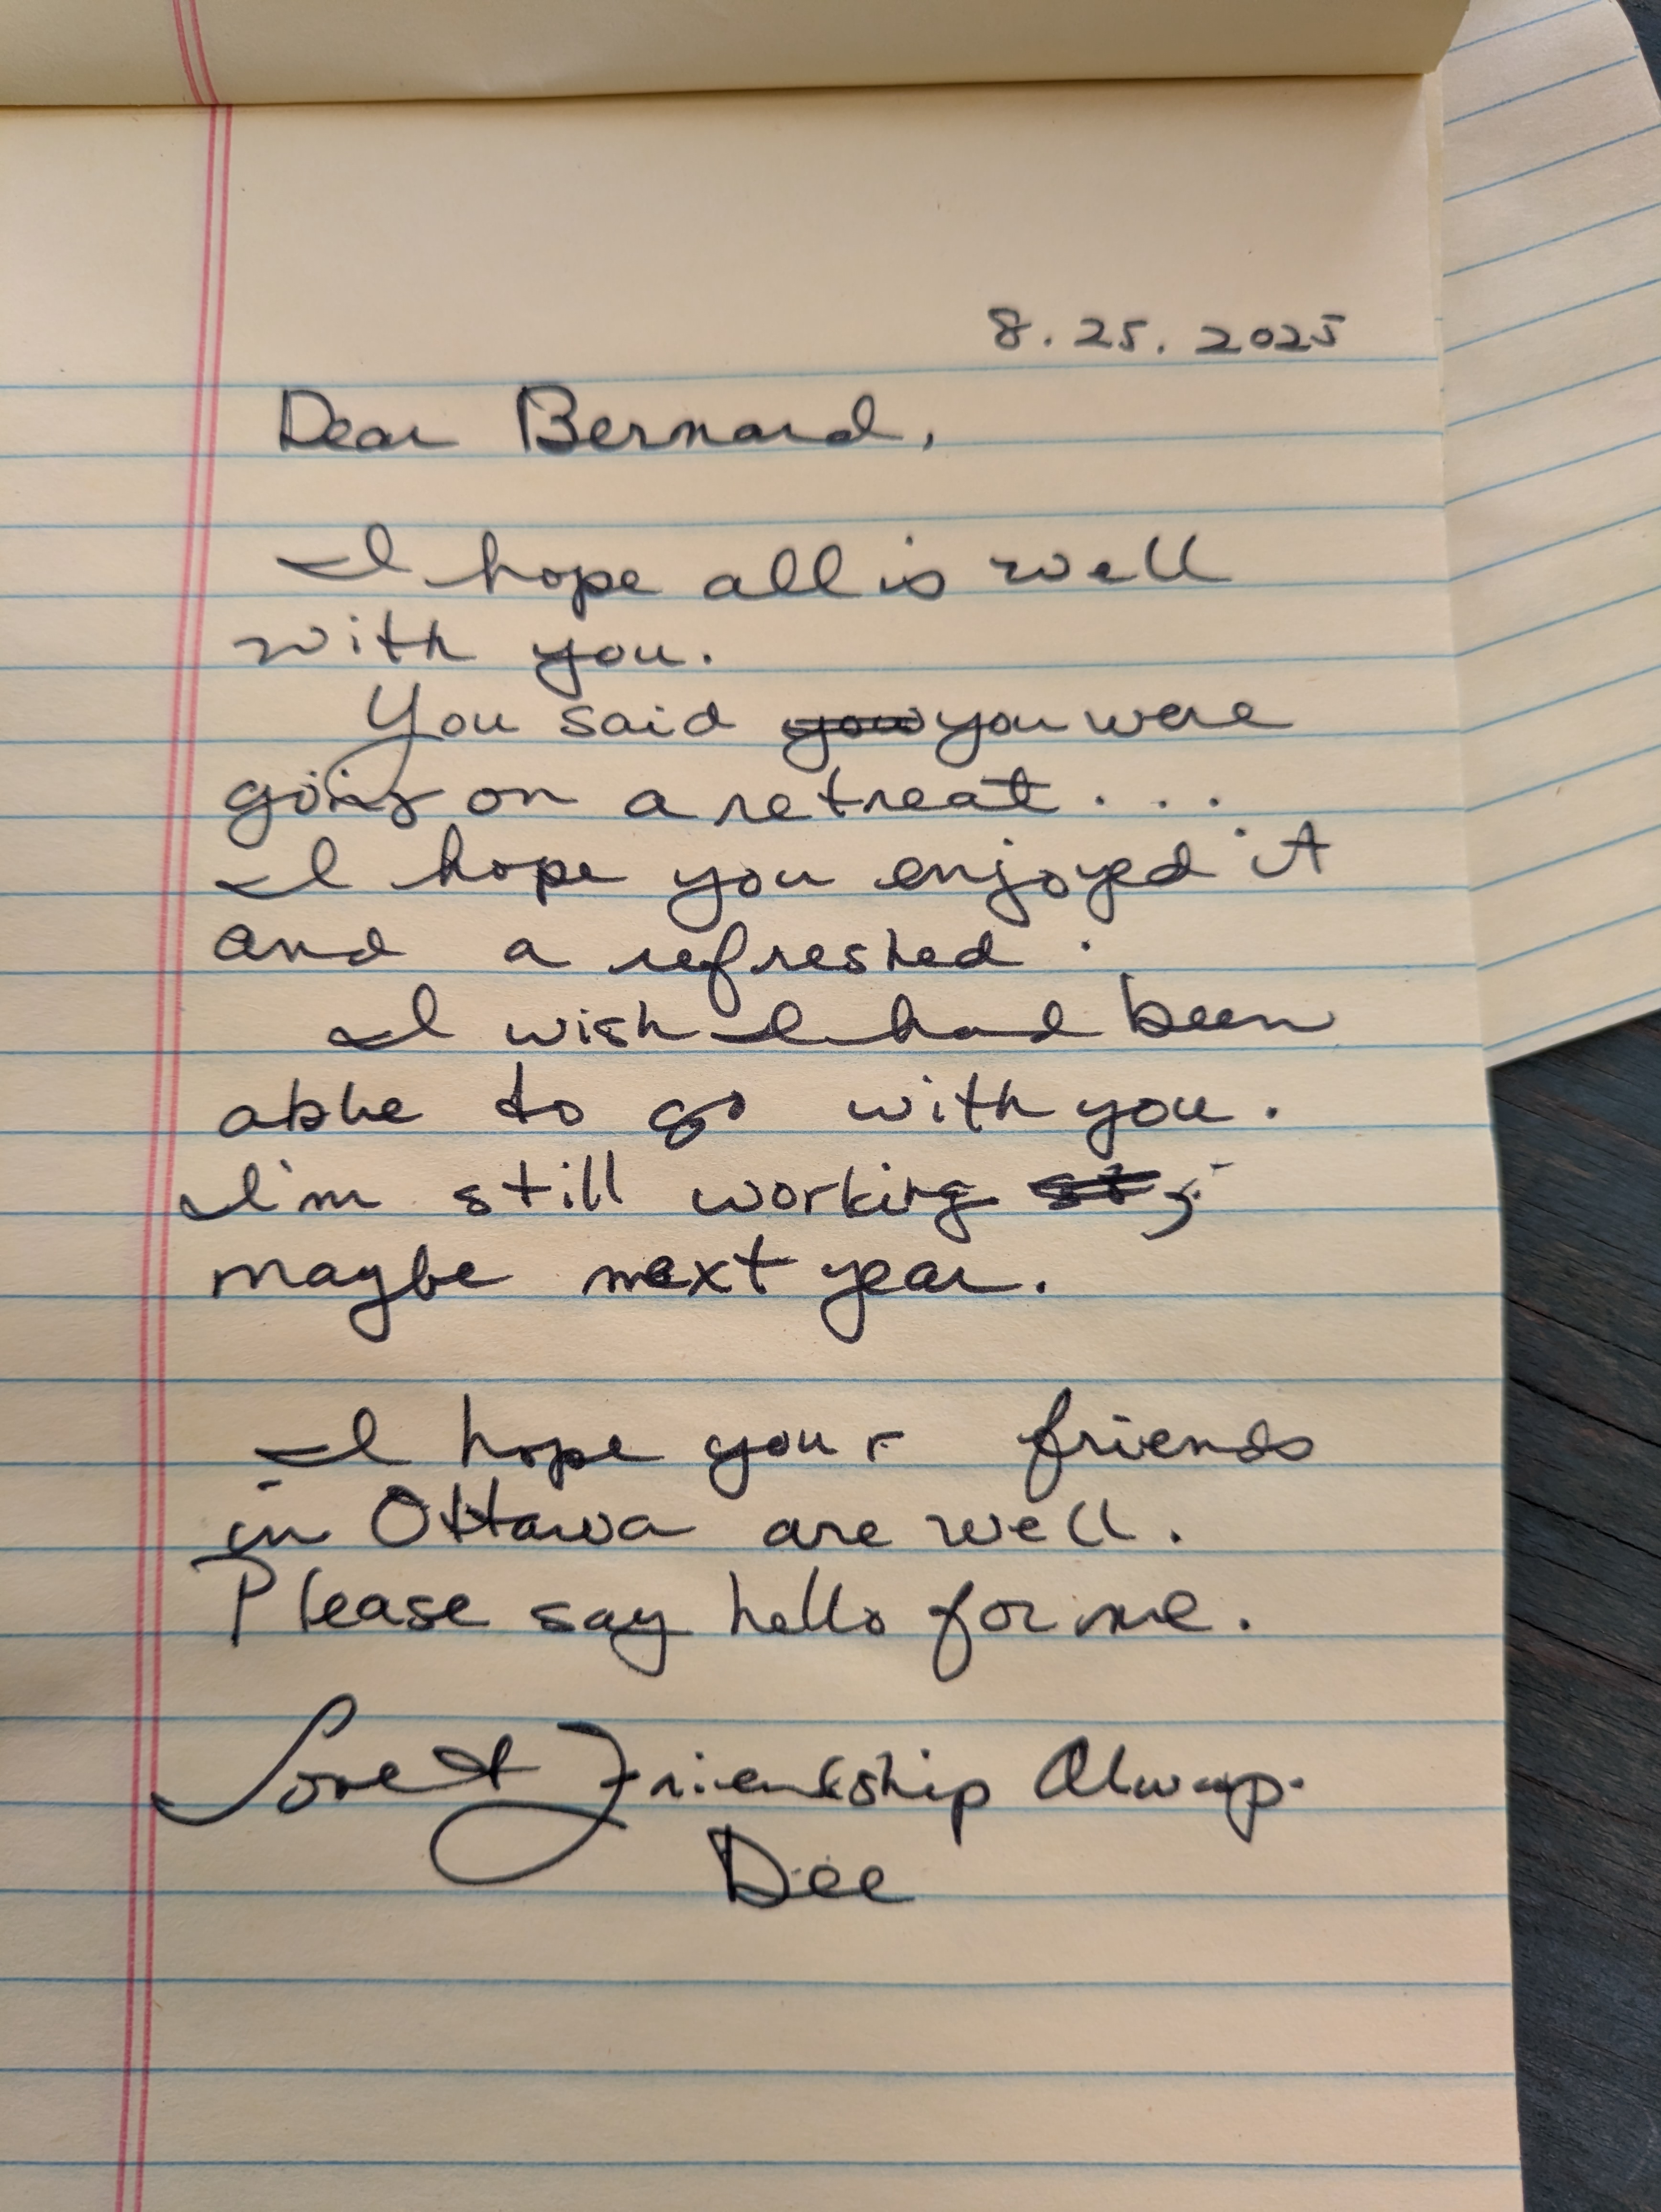 8.25.2025
Dear Bernard,
I hope all is well
with you.
You said you you were
going on a retreat...
I hope you enjoyed it
and a refreshed.
I wish I had been
able to go with you.
I'm still working st;
maybe next year.
I hope your friends
in Ottawa are well.
Please say hello for me.
Love & Friendship Always.
Dee